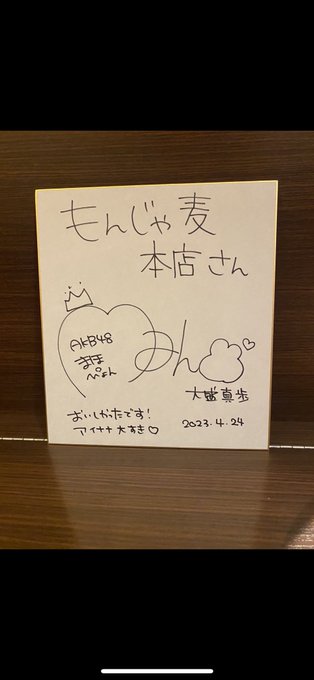 もんじゃ麦
本店さん
AKB48
まほ
ぴょん
みん
大盛真歩
おいしかったです!
アイナナ大すき♡
2023.4.24